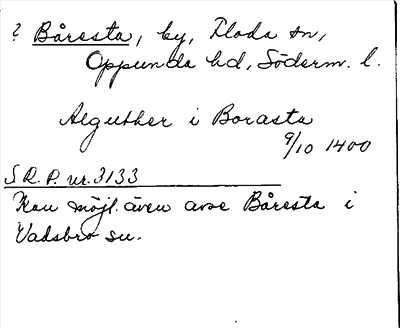 ? Båresta, by, Floda sn,
Oppunda hd, Söderm. l.
Alguther i Borasta
9/10 1400
S R. P. nr. 3133
Kan möjl. även avse Båresta i
Vadsbro sn.